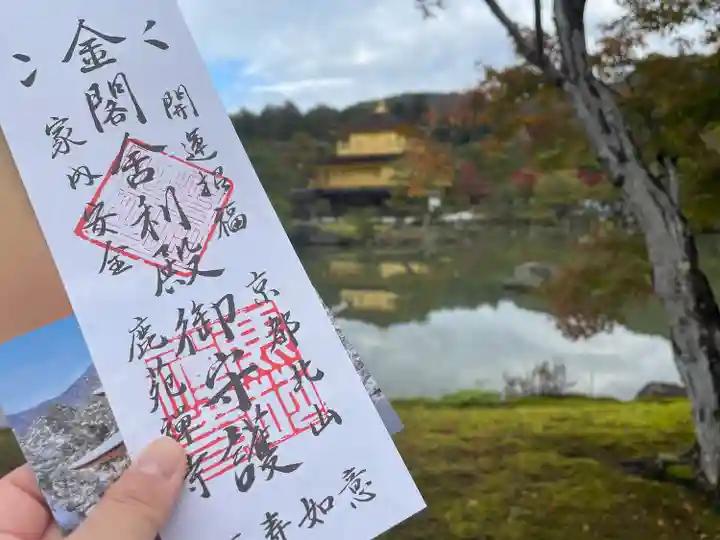 開運招福
金閣舎利殿御守護
家内安全
京都北山
鹿苑禅寺
寿如意